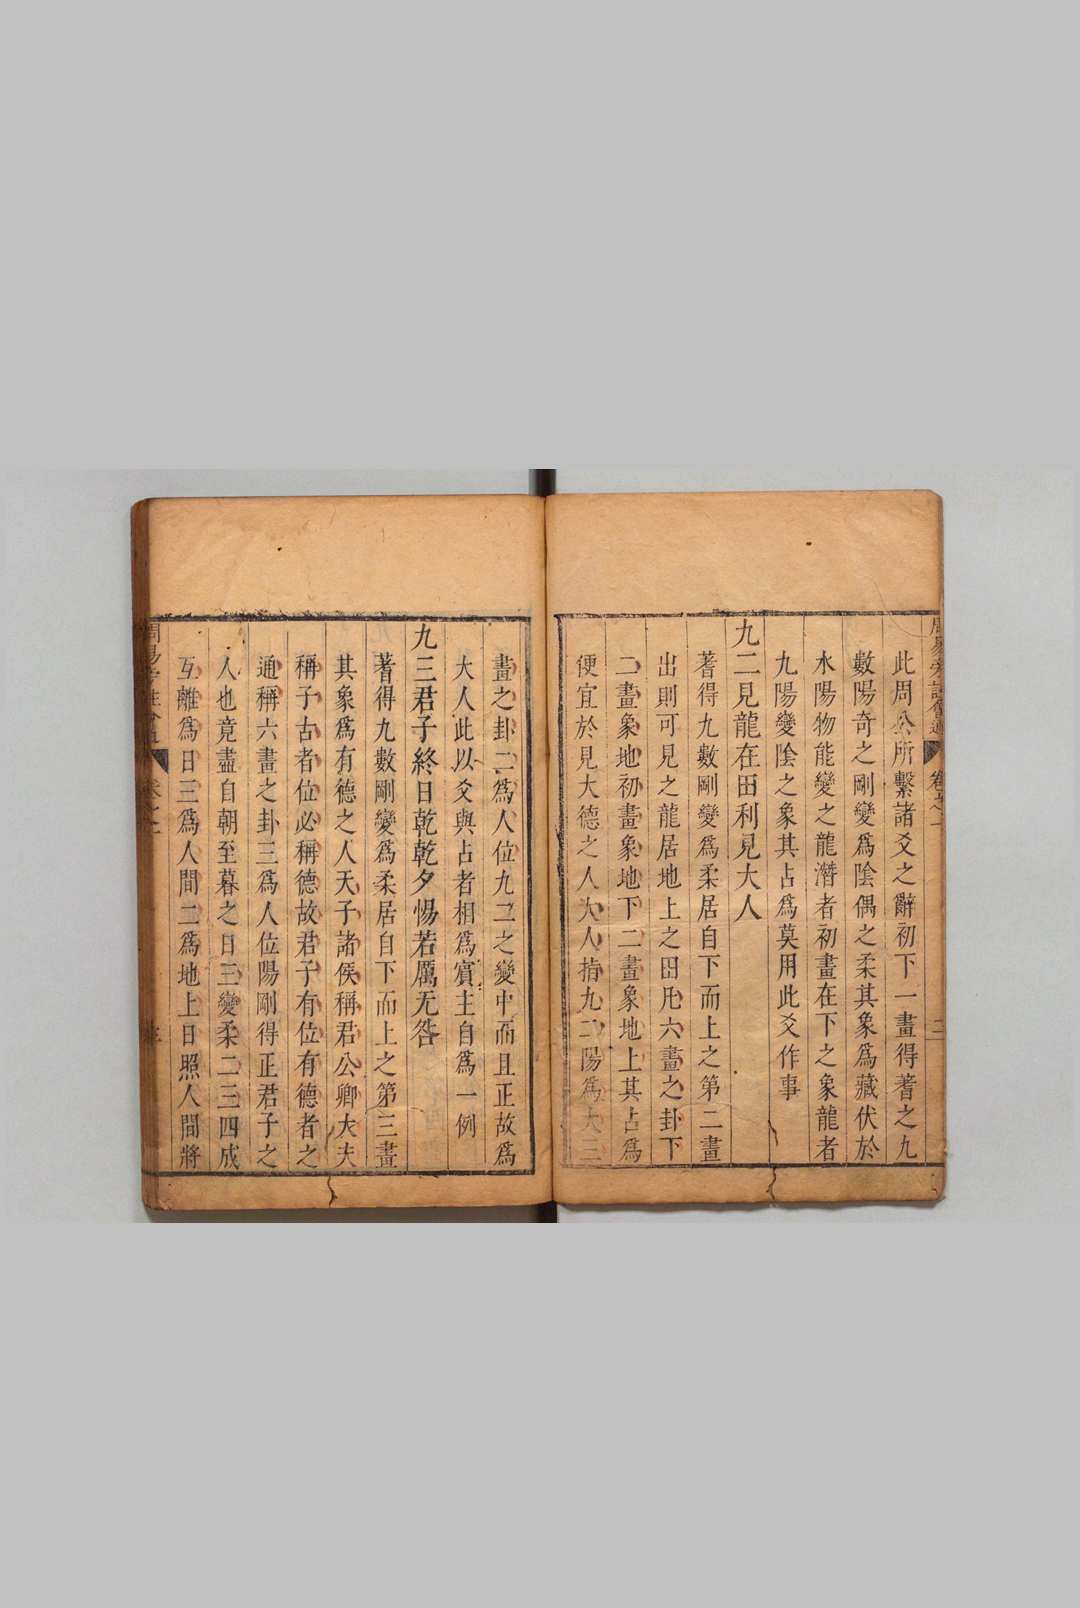 此周公所繫諸爻之辭初下一畫得蓍之九
數陽奇之剛變爲陰偶之柔其象爲藏伏於
水陽物能變之龍潛者初畫在下之象龍者
九陽變陰之象其占爲莫用此爻作事
九二見龍在田利見大人
蓍得九數剛變爲柔居自下而上之第二畫
出則可見之龍居地上之田凡六畫之卦下
二畫象地初畫象地下二畫象地上其占爲
便宜於見大德之人大人指九二陽爲大三
畫之卦二爲人位九二之變中而且正故爲
大人此以爻與占者相爲賓主自爲一例
九三君子終日乾乾夕惕若厲无咎
蓍得九數剛變爲柔居自下而上之第三畫
其象爲有德之人天子諸侯稱君公卿大夫
稱子古者位必稱德故君子有位有德者之
通稱六畫之卦三爲人位陽剛得正君子之
人也竟盡自朝至暮之日三變柔二三四成
互離爲日三爲人間二爲地上日照人間將